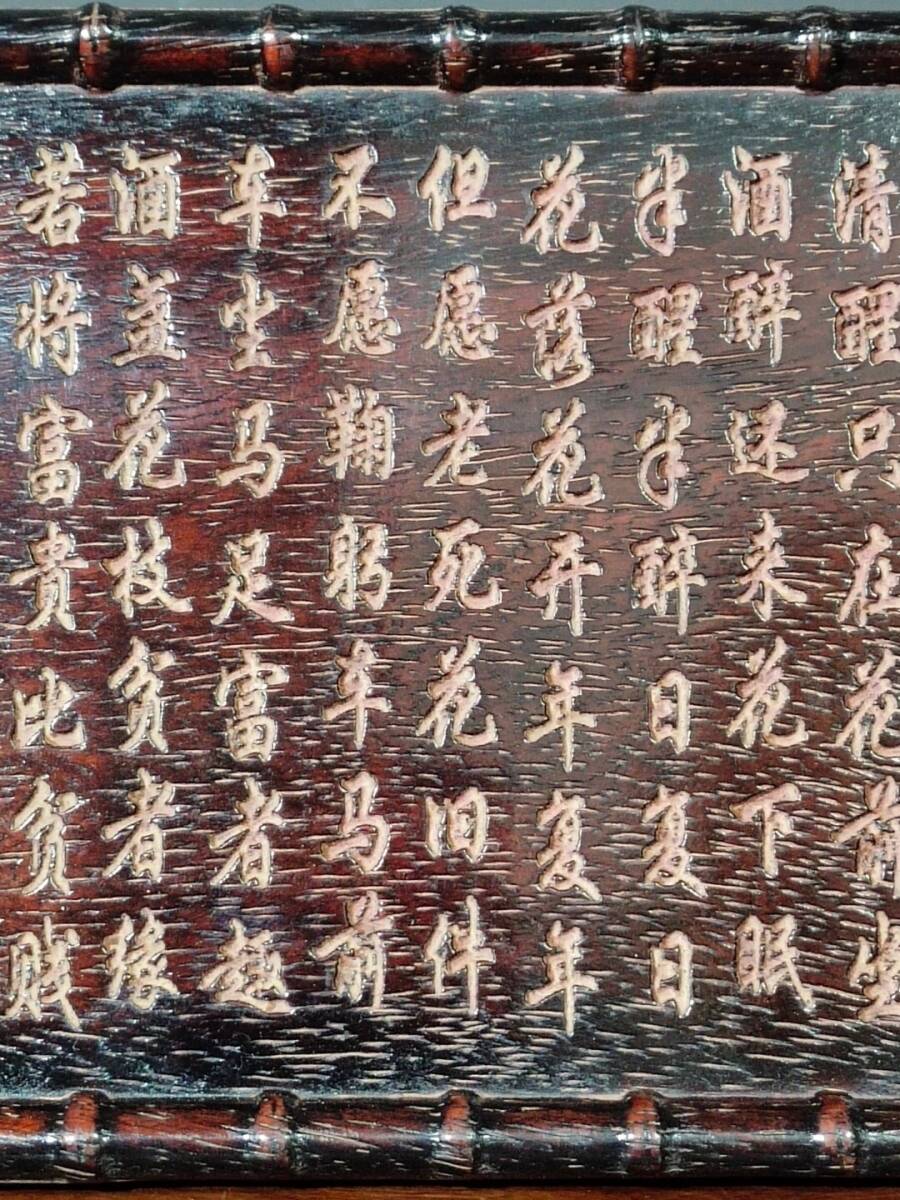 清醒只在花前坐
酒醉还来花下眠
半醒半醉日复日
花落花开年复年
但愿老死花旧件
不愿鞠躬车马前
车坐马足富者趣
酒盏花枝贫者缘
若将富贵比贫贱